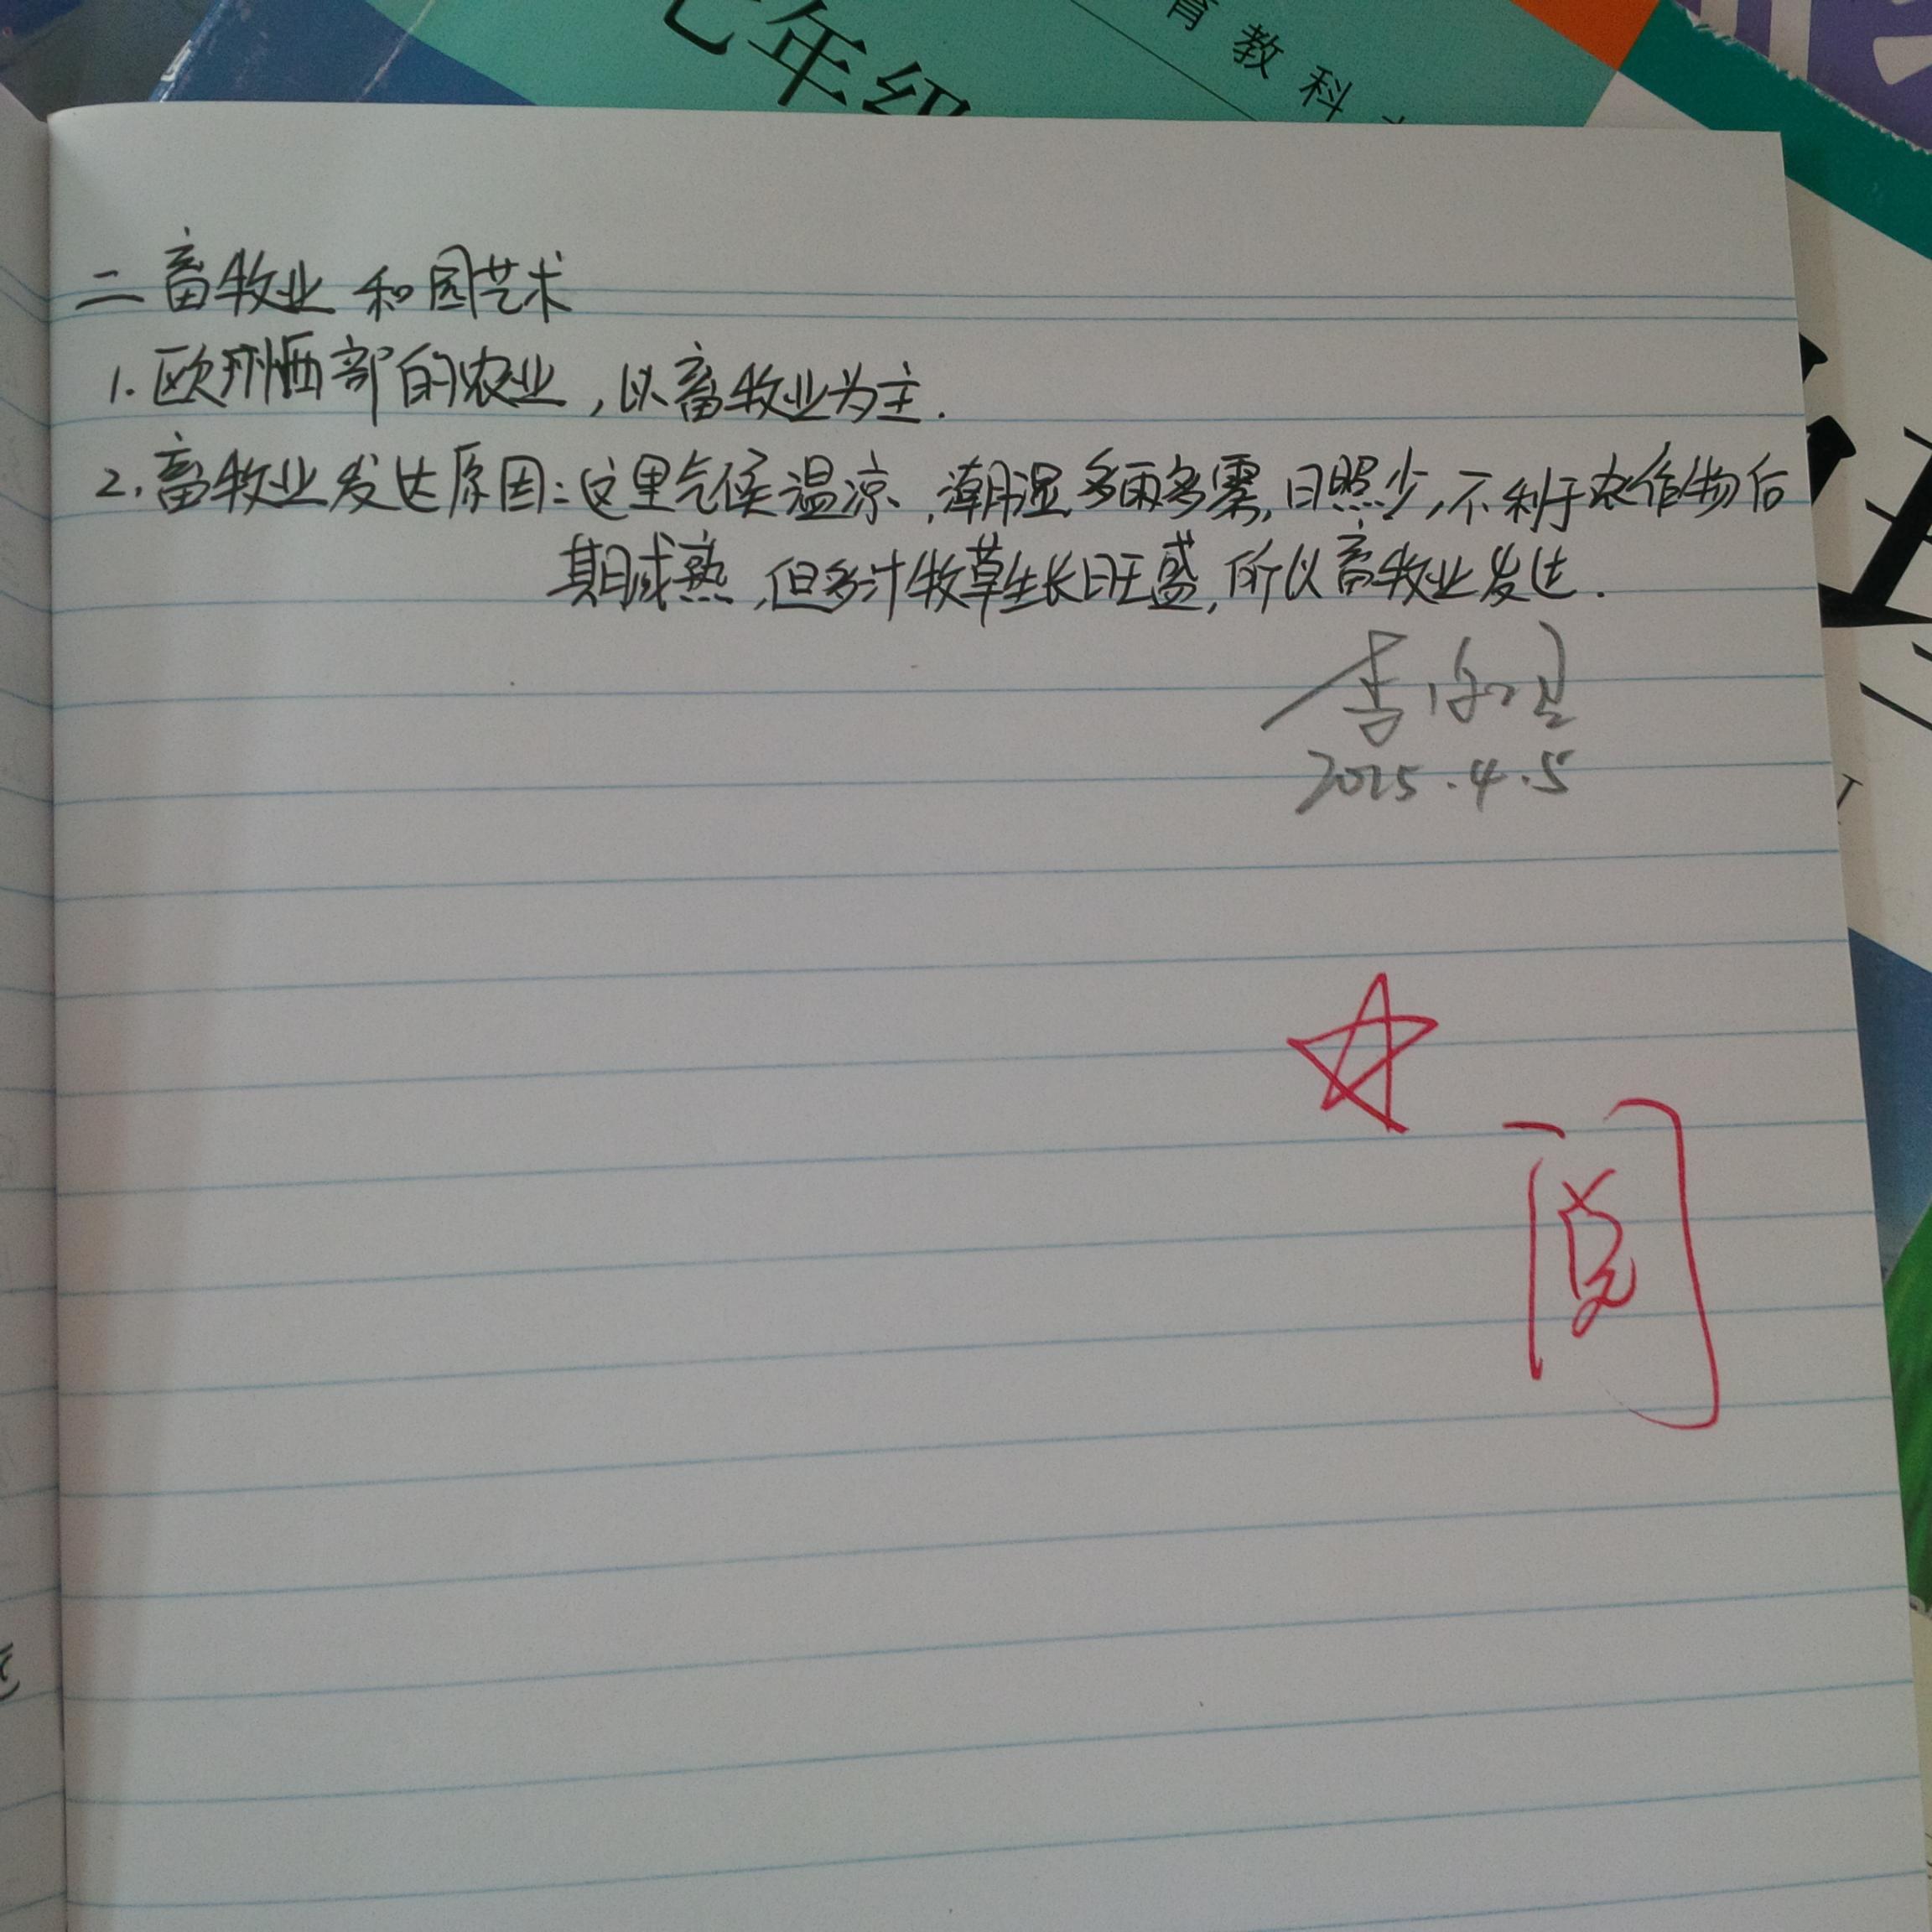 七年级
育教科
二 畜牧业 和园艺术
1. 欧洲西部的农业，以畜牧业为主.
2. 畜牧业发达原因：这里气候温凉，潮湿，多雨多雾，日照少，不利于农作物后
期成熟，但多汁牧草生长旺盛，所以畜牧业发达.
李
2025.4.5
阅